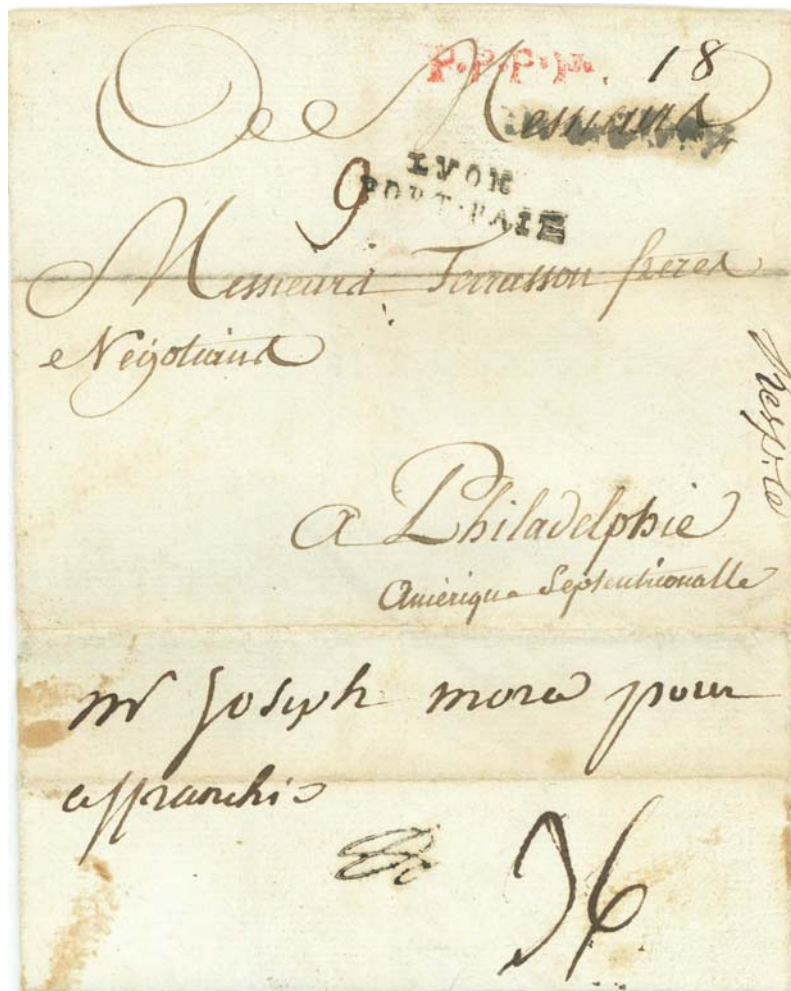 P.P.P.P. 18
De Messieurs
LYON
PORT·PAIE
9
Messieurs Terrasson freres
Negotiants
a Philadelphie
Amérique Septentrionalle
mr Joseph mora pour
affranchir
36